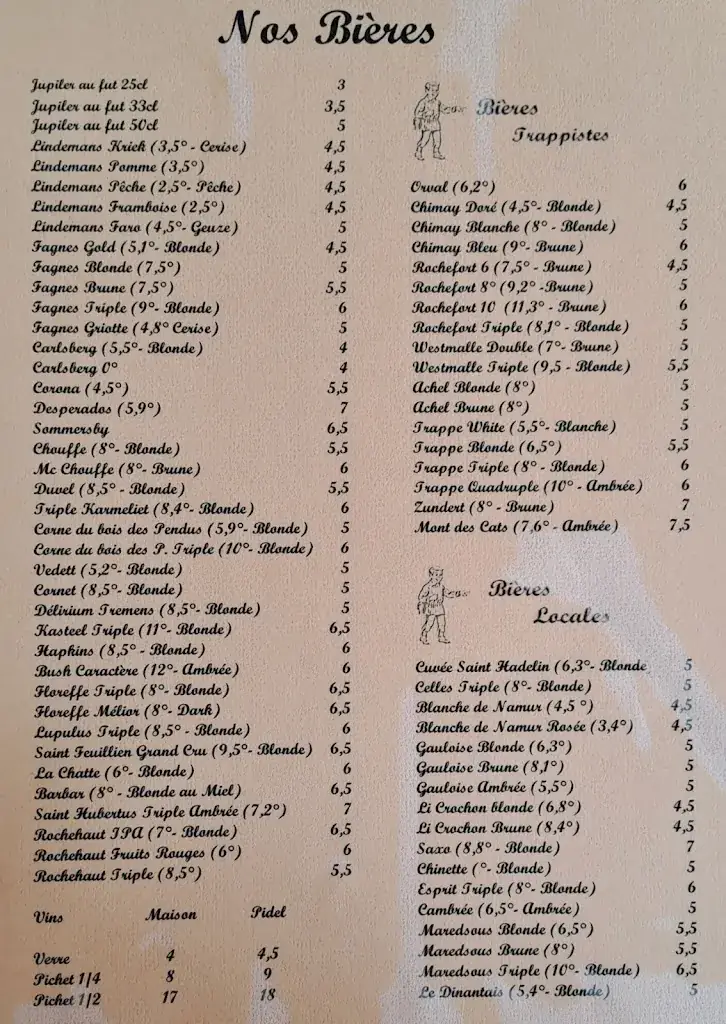 Nos Bières
Jupiler au fut 25cl 3
Jupiler au fut 33cl 3,5
Jupiler au fut 50cl 5
Lindemans Kriek (3,5° - Cerise) 4,5
Lindemans Pomme (3,5°) 4,5
Lindemans Pêche (2,5°- Pêche) 4,5
Lindemans Framboise (2,5°) 4,5
Lindemans Faro (4,5°- Geuze) 5
Fagnes Gold (5,1°- Blonde) 4,5
Fagnes Blonde (7,5°) 5
Fagnes Brune (7,5°) 5,5
Fagnes Triple (9°- Blonde) 6
Fagnes Griotte (4,8° Cerise) 5
Carlsberg (5,5°- Blonde) 4
Carlsberg 0° 4
Corona (4,5°) 5,5
Desperados (5,9°) 7
Sommersby 6,5
Chouffe (8°- Blonde) 5,5
Mc Chouffe (8°- Brune) 6
Duvel (8,5° - Blonde) 5,5
Triple Karmeliet (8,4°- Blonde) 6
Corne du bois des Pendus (5,9°- Blonde) 5
Corne du bois des P. Triple (10°- Blonde) 6
Vedett (5,2°- Blonde) 5
Cornet (8,5°- Blonde) 5
Délirium Tremens (8,5°- Blonde) 5
Kasteel Triple (11°- Blonde) 6,5
Hapkins (8,5° - Blonde) 6
Bush Caractère (12°- Ambrée) 6
Floreffe Triple (8°- Blonde) 6,5
Floreffe Mélior (8°- Dark) 6,5
Lupulus Triple (8,5° - Blonde) 6
Saint Feuillien Grand Cru (9,5°- Blonde) 6,5
La Chatte (6°- Blonde) 6
Barbar (8° - Blonde au Miel) 6,5
Saint Hubertus Triple Ambrée (7,2°) 7
Rochehaut IPA (7°- Blonde) 6,5
Rochehaut Fruits Rouges (6°) 6
Rochehaut Triple (8,5°) 5,5
Vins Maison Pidel
Verre 4 4,5
Pichet 1/4 8 9
Pichet 1/2 17 18
Bières
Trappistes
Orval (6,2°) 6
Chimay Doré (4,5°- Blonde) 4,5
Chimay Blanche (8° - Blonde) 5
Chimay Bleu (9°- Brune) 6
Rochefort 6 (7,5° - Brune) 4,5
Rochefort 8° (9,2° -Brune) 5
Rochefort 10 (11,3° - Brune) 6
Rochefort Triple (8,1° - Blonde) 5
Westmalle Double (7°- Brune) 5
Westmalle Triple (9,5 - Blonde) 5,5
Achel Blonde (8°) 5
Achel Brune (8°) 5
Trappe White (5,5°- Blanche) 5
Trappe Blonde (6,5°) 5,5
Trappe Triple (8° - Blonde) 6
Trappe Quadruple (10° - Ambrée) 6
Zundert (8° - Brune) 7
Mont des Cats (7,6° - Ambrée) 7,5
Bières
Locales
Cuvée Saint Hadelin (6,3°- Blonde 5
Celles Triple (8°- Blonde) 5
Blanche de Namur (4,5 °) 4,5
Blanche de Namur Rosée (3,4°) 4,5
Gauloise Blonde (6,3°) 5
Gauloise Brune (8,1°) 5
Gauloise Ambrée (5,5°) 5
Li Crochon blonde (6,8°) 4,5
Li Crochon Brune (8,4°) 4,5
Saxo (8,8° - Blonde) 7
Chinette (°- Blonde) 5
Esprit Triple (8°- Blonde) 6
Cambrée (6,5°- Ambrée) 5
Maredsous Blonde (6,5°) 5,5
Maredsous Brune (8°) 5,5
Maredsous Triple (10°- Blonde) 6,5
Le Dinantais (5,4°- Blonde) 5